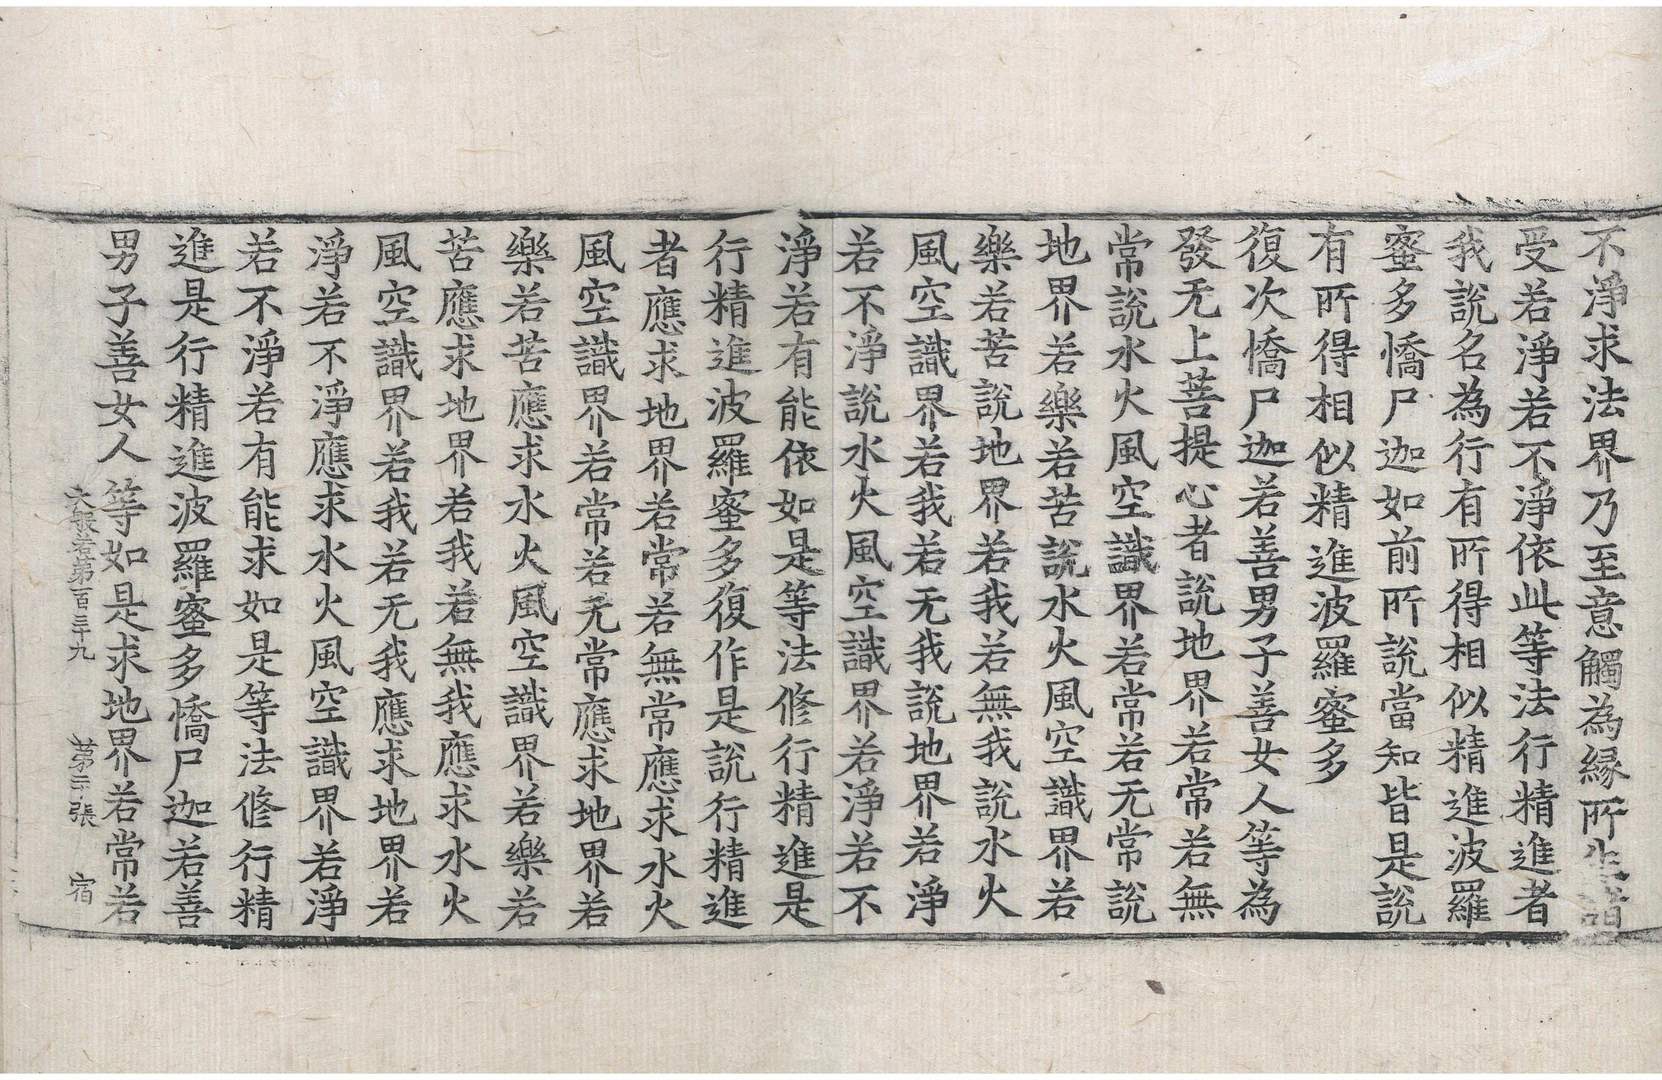 不淨求法界乃至意觸為緣所生諸
受若淨若不淨依此等法行精進者
我說名為行有所得相似精進波羅
蜜多憍尸迦如前所說當知皆是說
有所得相似精進波羅蜜多
復次憍尸迦若善男子善女人等為
發无上菩提心者說地界若常若無
常說水火風空識界若常若无常說
地界若樂若苦說水火風空識界若
樂若苦說地界若我若無我說水火
風空識界若我若无我說地界若淨
若不淨說水火風空識界若淨若不
淨若有能依如是等法修行精進是
行精進波羅蜜多復作是說行精進
者應求地界若常若無常應求水火
風空識界若常若无常應求地界若
樂若苦應求水火風空識界若樂若
苦應求地界若我若無我應求水火
風空識界若我若无我應求地界若
淨若不淨應求水火風空識界若淨
若不淨若有能求如是等法修行精
進是行精進波羅蜜多憍尸迦若善
男子善女人等如是求地界若常若
大般若第百三十九 第二張 宿